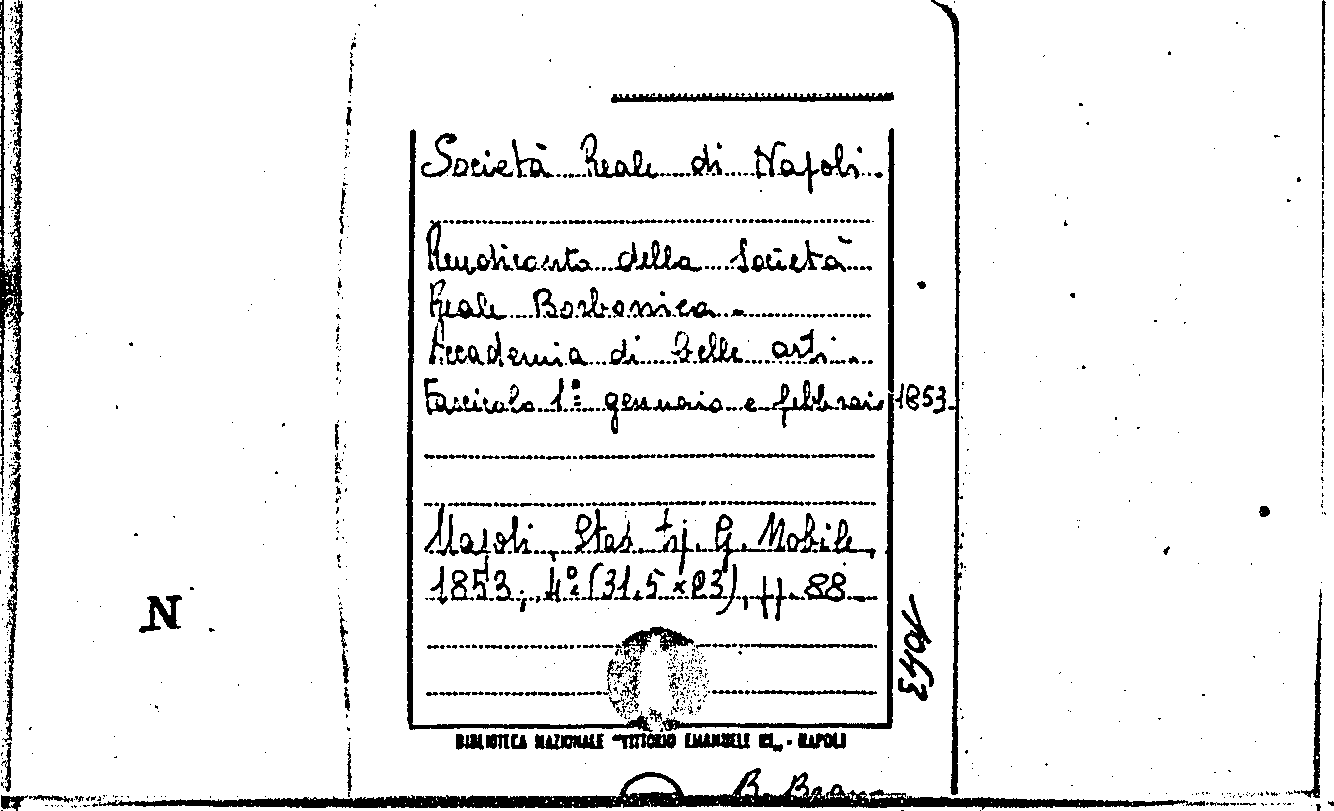 Società Reale di Napoli.
Rendiconto della Società
Reale Borbonica.
Accademia di belle arti.
Fascicolo 1º gennaio e febbraio 1853.
Napoli, Stab. tip. G. Nobile,
1853, 4º (31,5 x 23), pp. 88.
N
BIBLIOTECA NAZIONALE "VITTORIO EMANUELE III" - NAPOLI
B. Branc